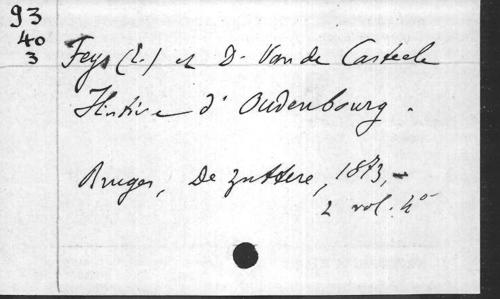 93
40
3
Feys (E.) et D. Van de Casteele
Histoire d'Oudenbourg.
Bruges, De Zuttere, 1873,-
2 vol. 4°